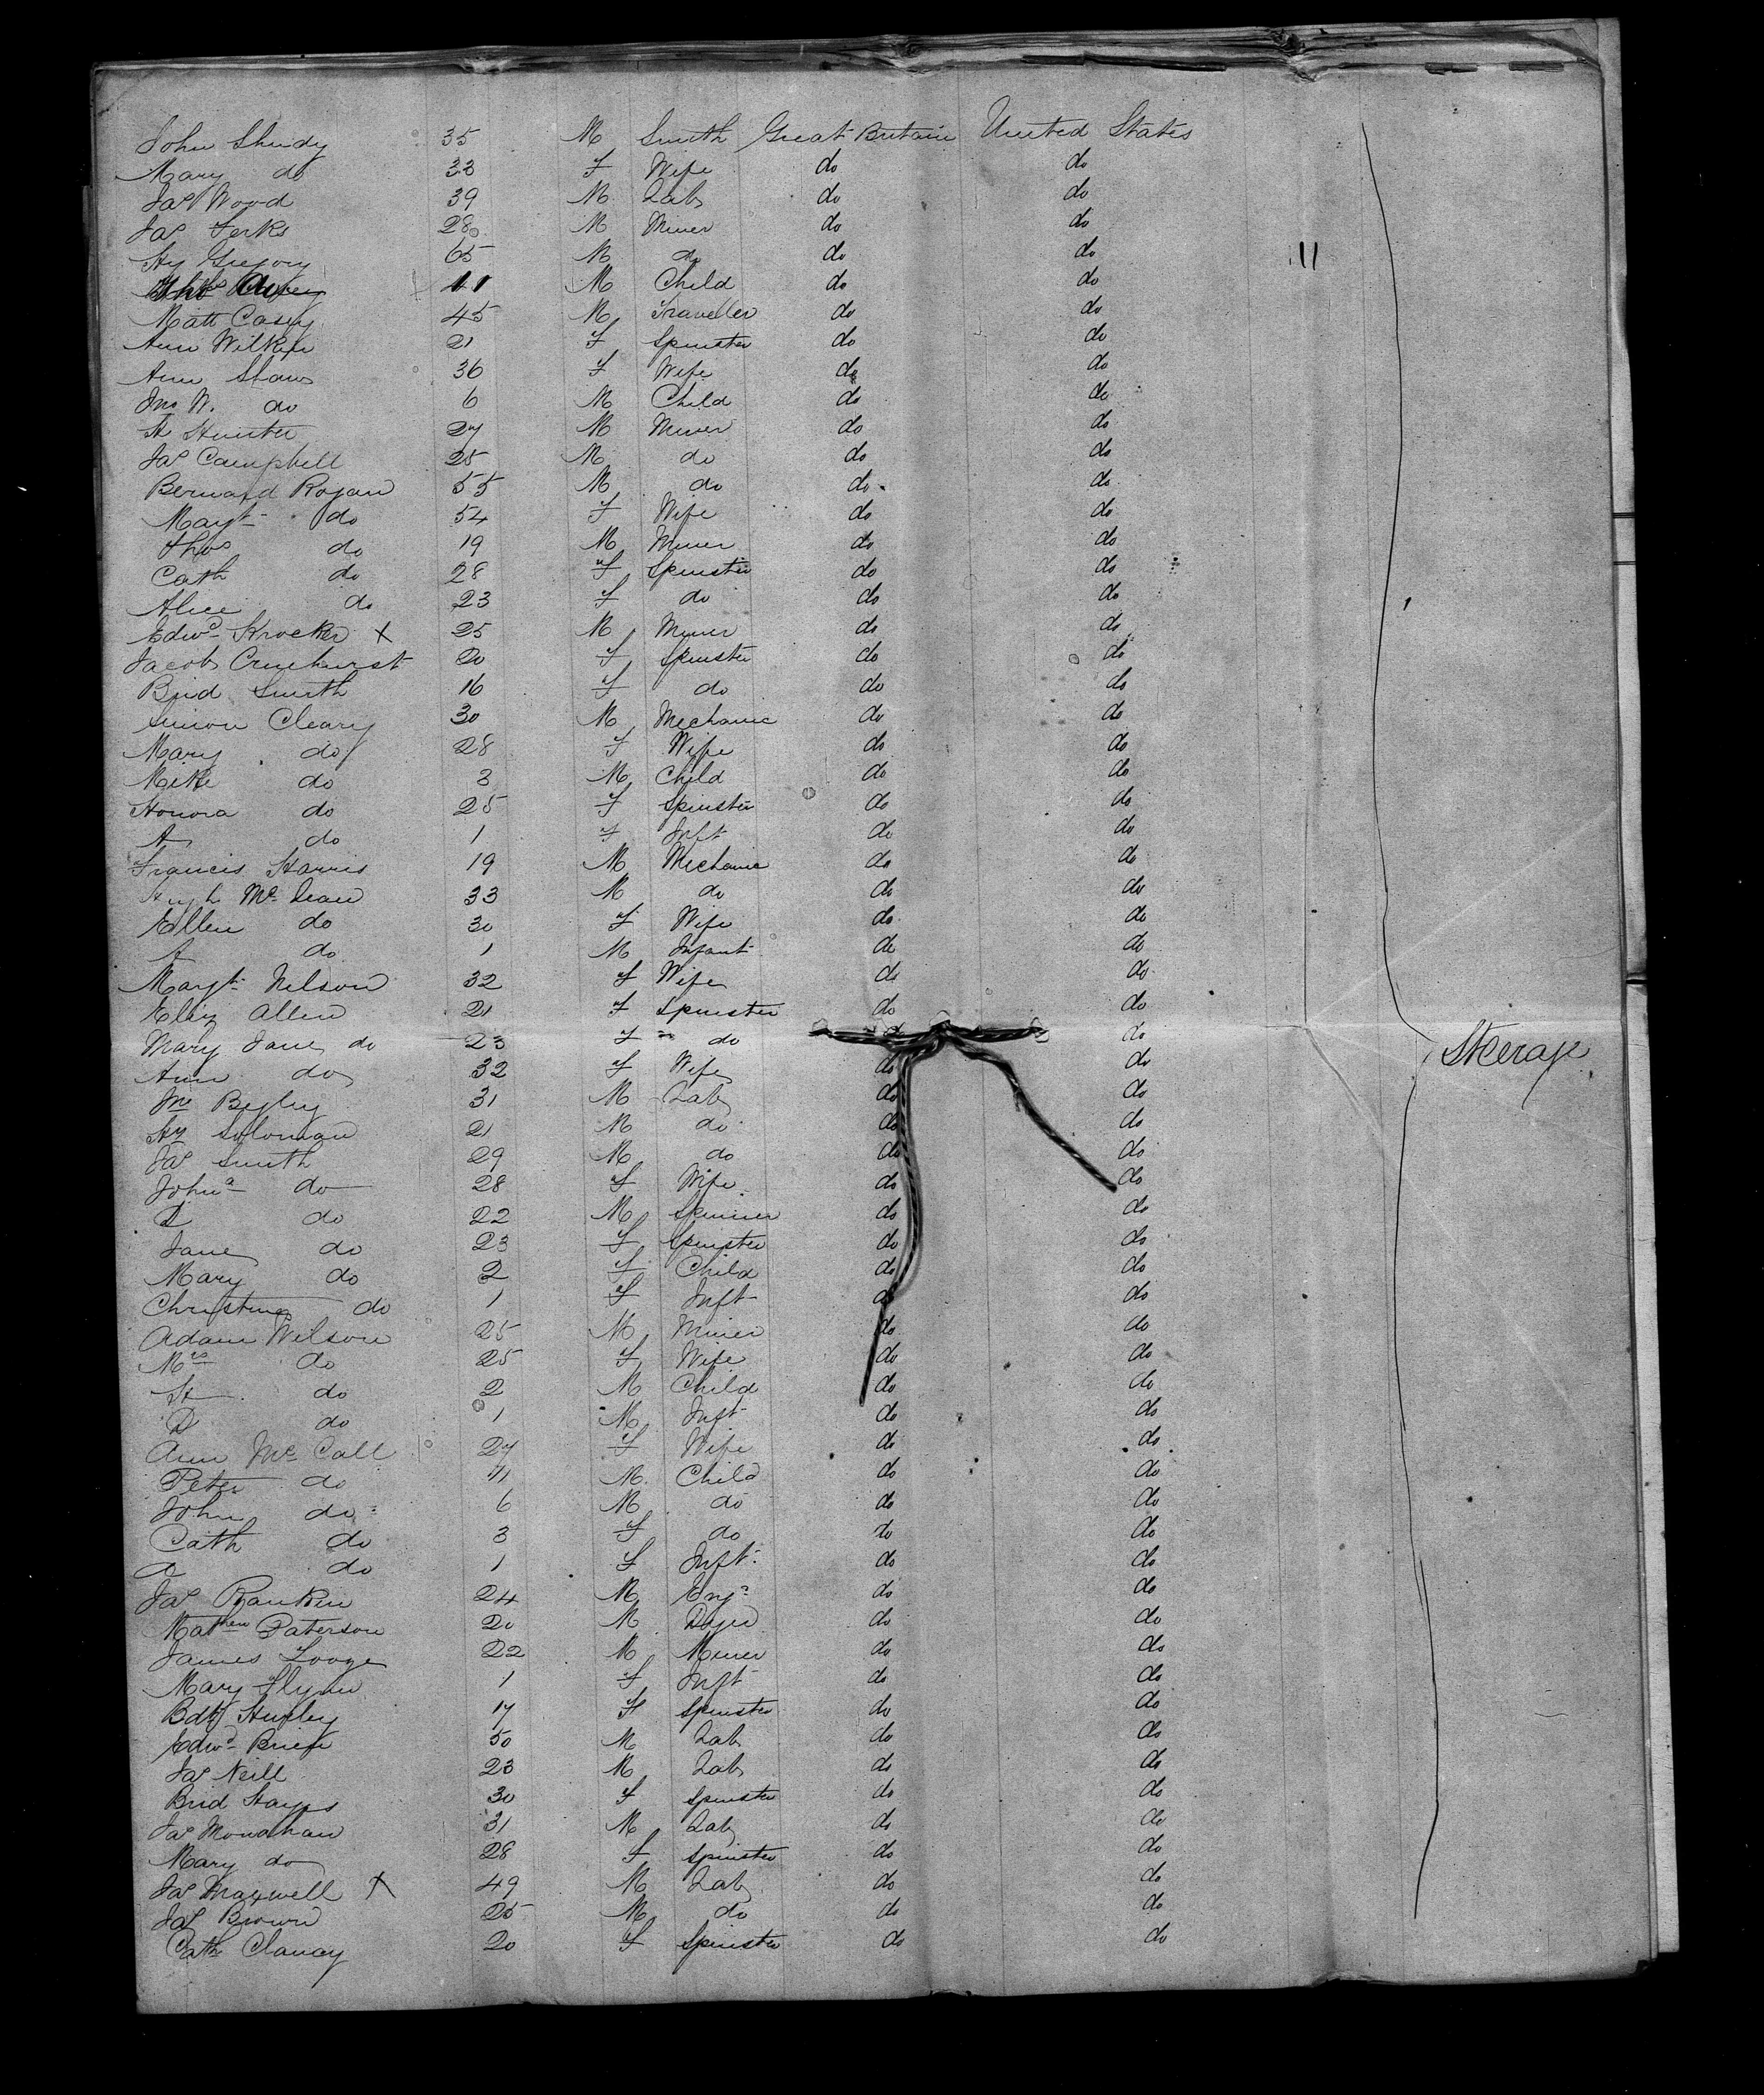 John Shindy 35 M Smith Great Britain United States
Mary do 33 F Wife do do
Jas Wood 39 M Lab do do
Jas Jerks 28 M Miner do do
Hy Gregory 65 M do do do 11
11 M Child do do
Matt Casey 45 M Traveller do do
Ann Wilkin 21 F Spinster do do
Ann Shaw 36 F Wife do do
Jno W. do 6 M Child do do
A Hunter 27 M Miner do do
Jas Campbell 25 M do do do
Bernard Rogan 55 M do do do
Margt do 54 F Wife do do
Thos do 19 M Miner do do
Cath do 28 F Spinster do do
Alice do 23 F do do do
Edwd Krocker X 25 M Miner do do
Jacob Crunhurst 20 F Spinster do do
Brid Smith 16 F do do do
Simon Cleary 30 M Mechanic do do
Mary do 28 F Wife do do
Mike do 3 M Child do do
Honora do 25 F Spinster do do
A do 1 F Inft do do
Francis Harris 19 M Mechanic do do
Hugh Mc Lean 33 M do do do
Ellen do 30 F Wife do do
A do 1 M Infant do do
Margt Nelson 32 F Wife do do
Eliz Allen 21 F Spinster do do
Mary Jane do 23 F do do do
Steerage
Ann do 32 F Wife do do
Jno Begley 31 M Lab do do
Hy Soloman 21 M do do do
Jas Smith 29 M do do do
Johna do 28 F Wife do do
D do 22 M Spinner do do
Jane do 23 F Spinster do do
Mary do 2 F Child do do
Christina do 1 F Inft do do
Adam Wilson 25 M Miner do do
Mrs do 25 F Wife do do
H do 2 M Child do do
D do 1 M Inft do do
Ann Mc Call 27 F Wife do do
Peter do 11 M Child do do
John do 6 M do do do
Cath do 3 F do do do
A do 1 F Inft do do
Jas Rankin 24 M Engr do do
Mathew Paterson 20 M Dyer do do
James Looge 22 M Miner do do
Mary Flynn 1 F Inft do do
Bdt Hurley 17 F Spinster do do
Edwd Brien 50 M Lab do do
Jas Neill 23 M Lab do do
Brid Hayes 30 F Spinster do do
Jas Monahan 31 M Lab do do
Mary do 28 F Spinster do do
Jas Maxwell X 49 M Lab do do
Jas Brown 25 M do do do
Cath Clancy 20 F Spinster do do